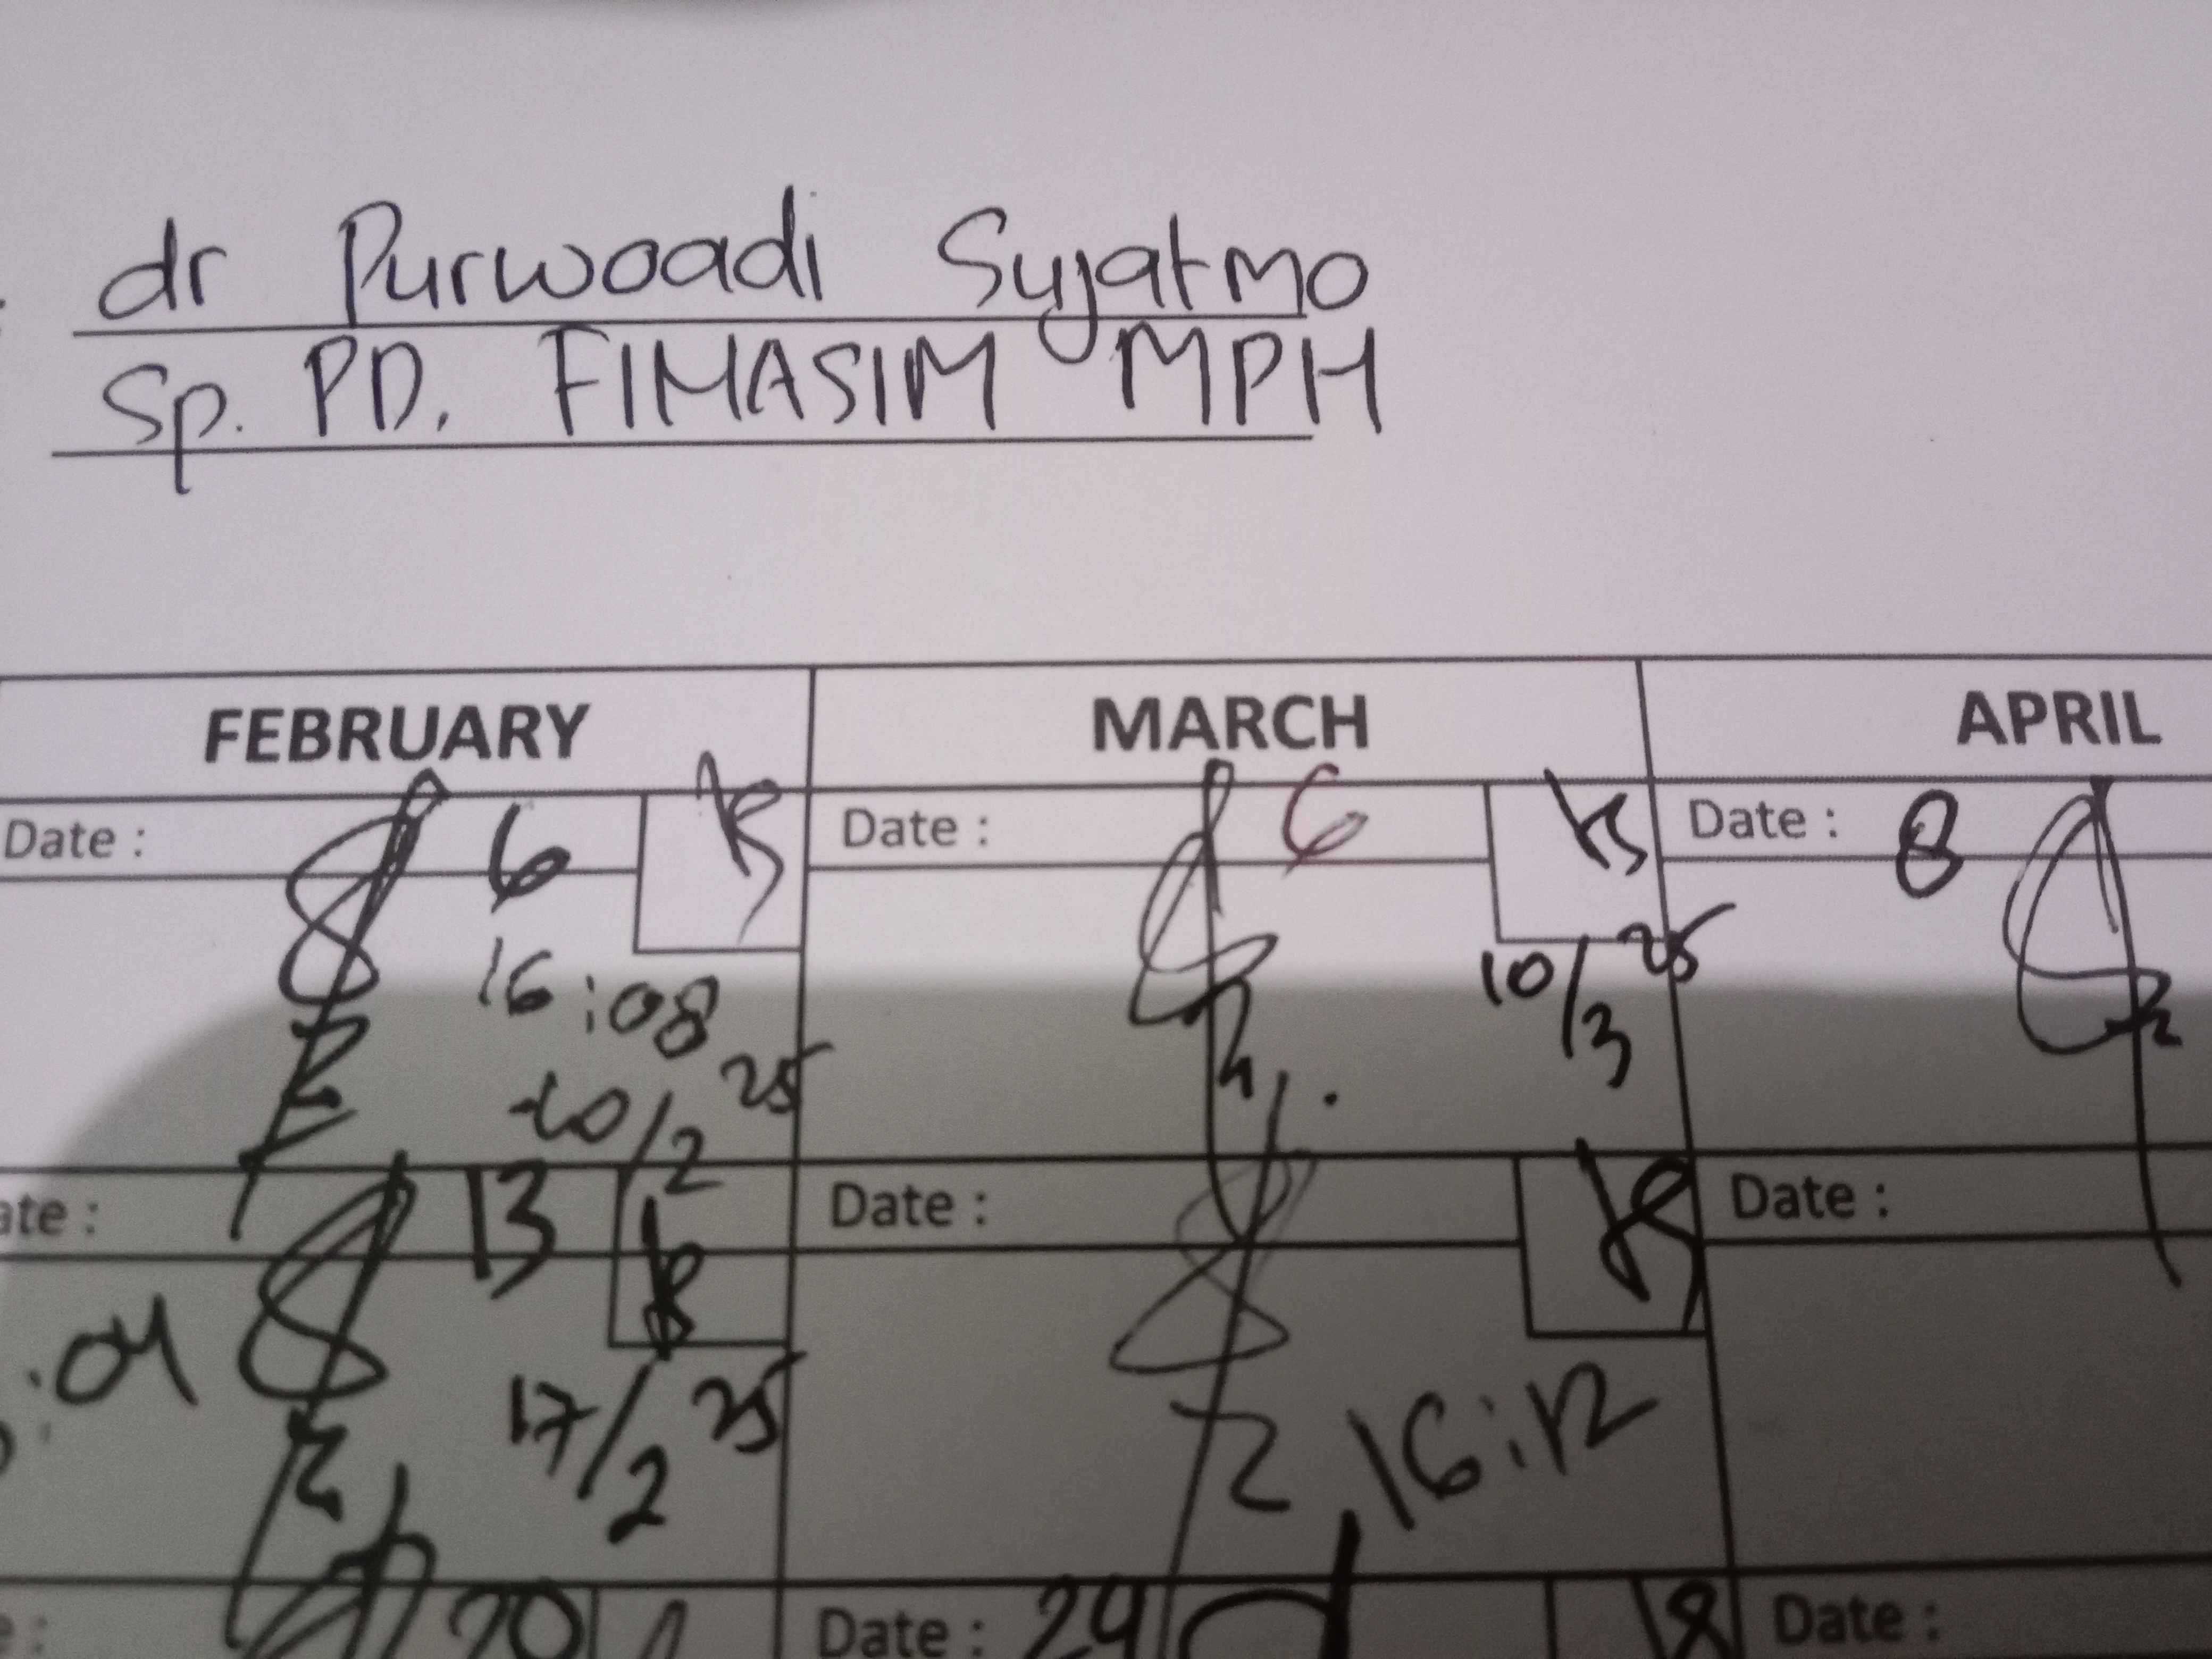 dr Purwoadi Sujatmo
Sp. PD. FIMASIM MPH
FEBRUARY MARCH APRIL
Date : 6 Date : 6 Date : 8
16:08
10/2 25 10/3 25
ate : 13 Date : Date :
.04
17/2 25 16:12
e : 20 Date : 24 Date :